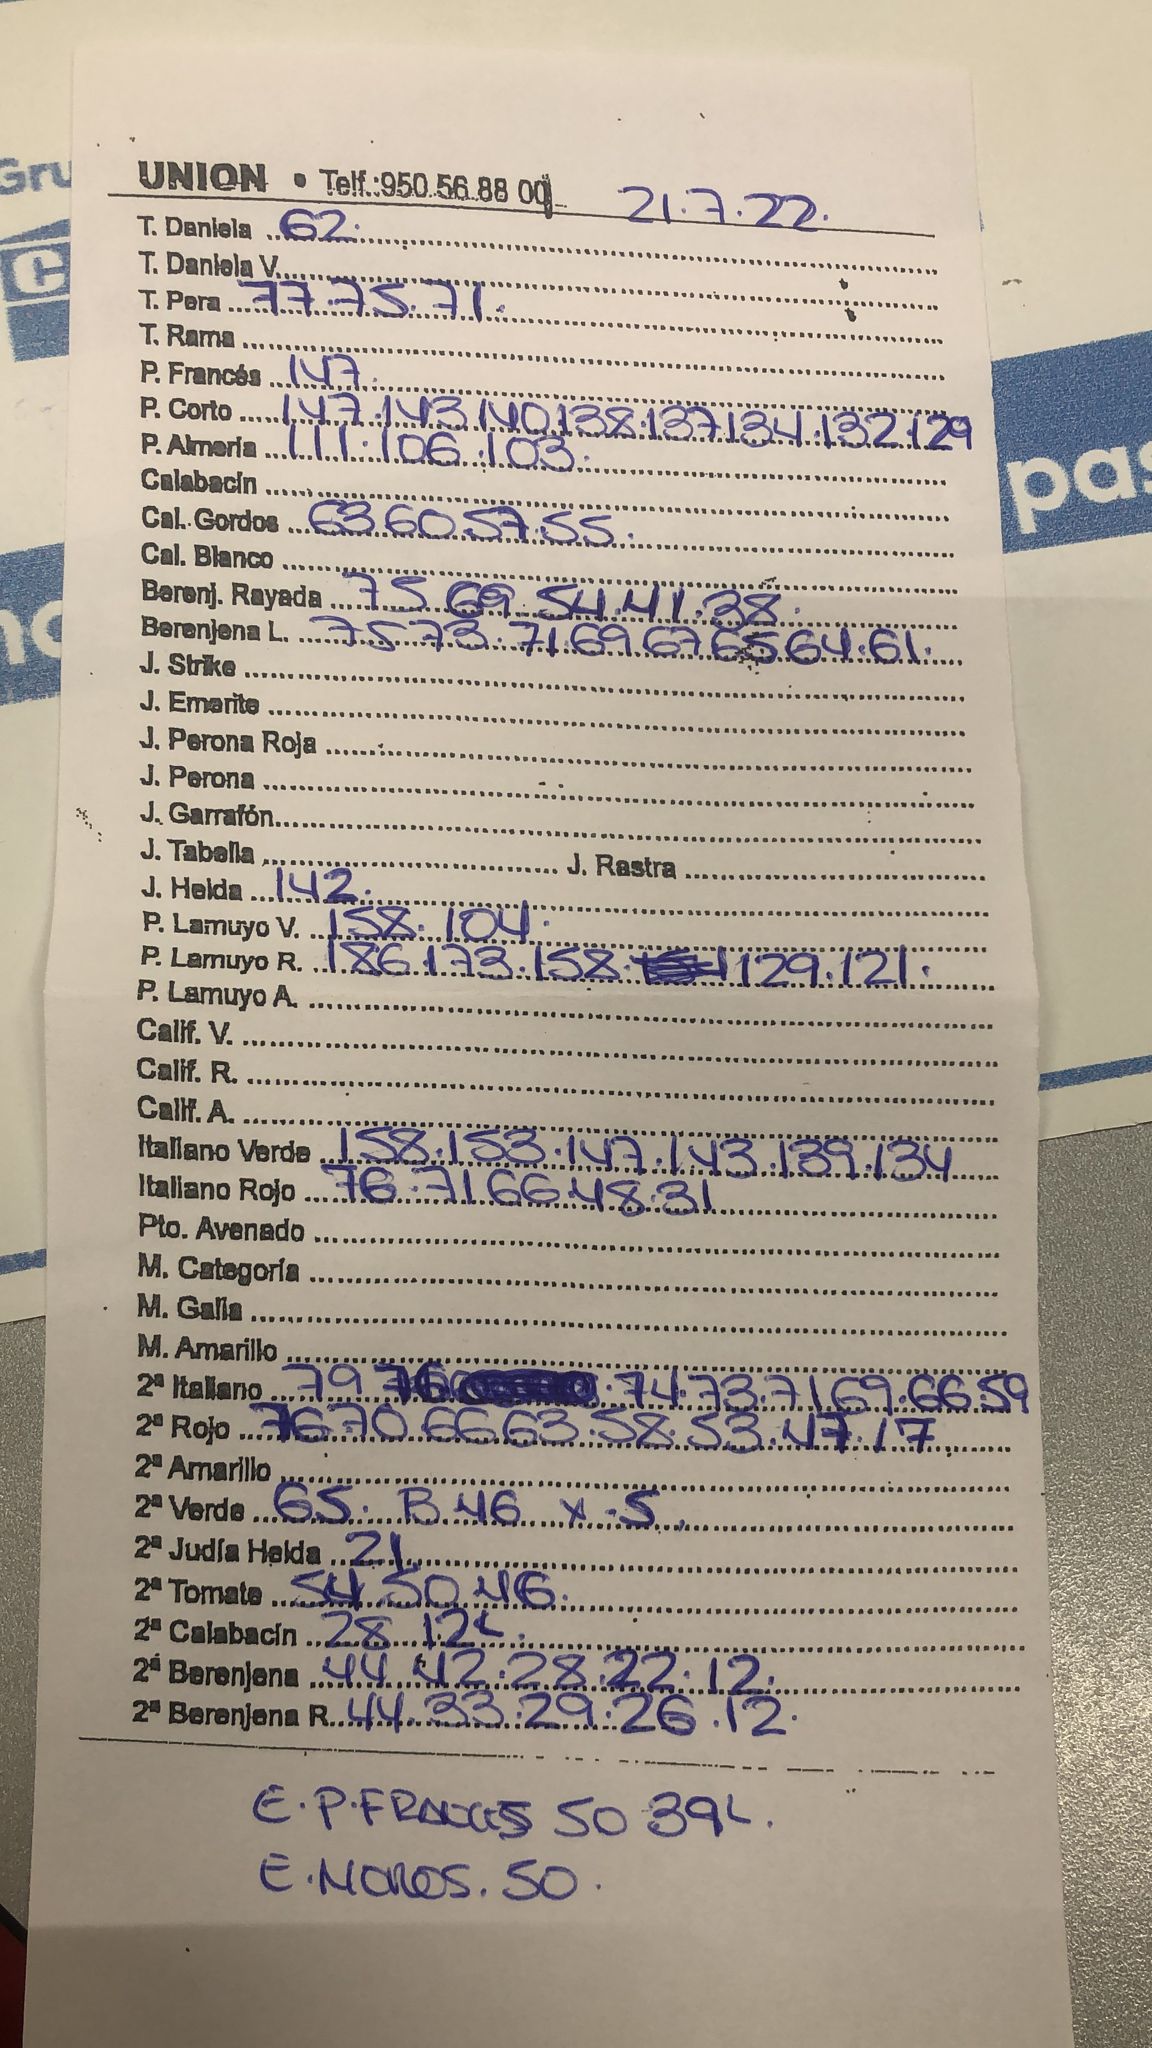 Gru
C
pas
no
UNION • Telf.:950 56 88 00 21.7.22.
T. Daniela 62.
T. Daniela V.
T. Pera 77.75.71.
T. Rama
P. Francés 147.
P. Corto 147.143.140.138.137.134.132.129
P. Almería 111.106.103.
Calabacín
Cal. Gordos 63.60.57.55.
Cal. Blanco
Berenj. Rayada 75.69.54.41.38.
Berenjena L. 75.73.71.69.67.65.64.61.
J. Strike
J. Emerite
J. Perona Roja
J. Perona
J. Garrafón
J. Tabella J. Rastra
J. Helda 142.
P. Lamuyo V. 158.104.
P. Lamuyo R. 186.173.158. 129.121.
P. Lamuyo A.
Calif. V.
Calif. R.
Calif. A.
Italiano Verde 158.153.147.143.139.134
Italiano Rojo 76.71.66.48.31
Pto. Avenado
M. Categoría
M. Galia
M. Amarillo
2ª Italiano 79.76.74.73.71.69.66.59
2ª Rojo 76.70.66.63.58.53.47.17
2ª Amarillo
2ª Verde 65. B.46 x-5.
2ª Judía Helda 21.
2ª Tomate 54.50.46.
2ª Calabacín 28 12L.
2ª Berenjena 44.42.28.22.12.
2ª Berenjena R. 44.33.29.26.12.
E.P.FRANCES 50 39L.
E.MOROS.50.